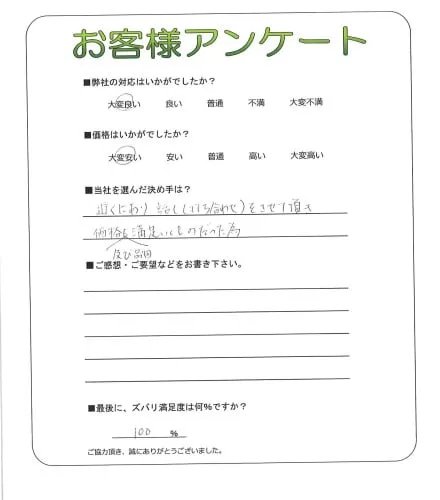 お客様アンケート
■弊社の対応はいかがでしたか？
大変良い 良い 普通 不満 大変不満
■価格はいかがでしたか？
大変安い 安い 普通 高い 大変高い
■当社を選んだ決め手は？
近くにあり 詳しく(打ち合わせ)をさせて頂き
価格も満足いくものだった為
及び品目
■ご感想・ご要望などをお書き下さい。
■最後に、ズバリ満足度は何%ですか？
100 %
ご協力頂き、誠にありがとうございました。